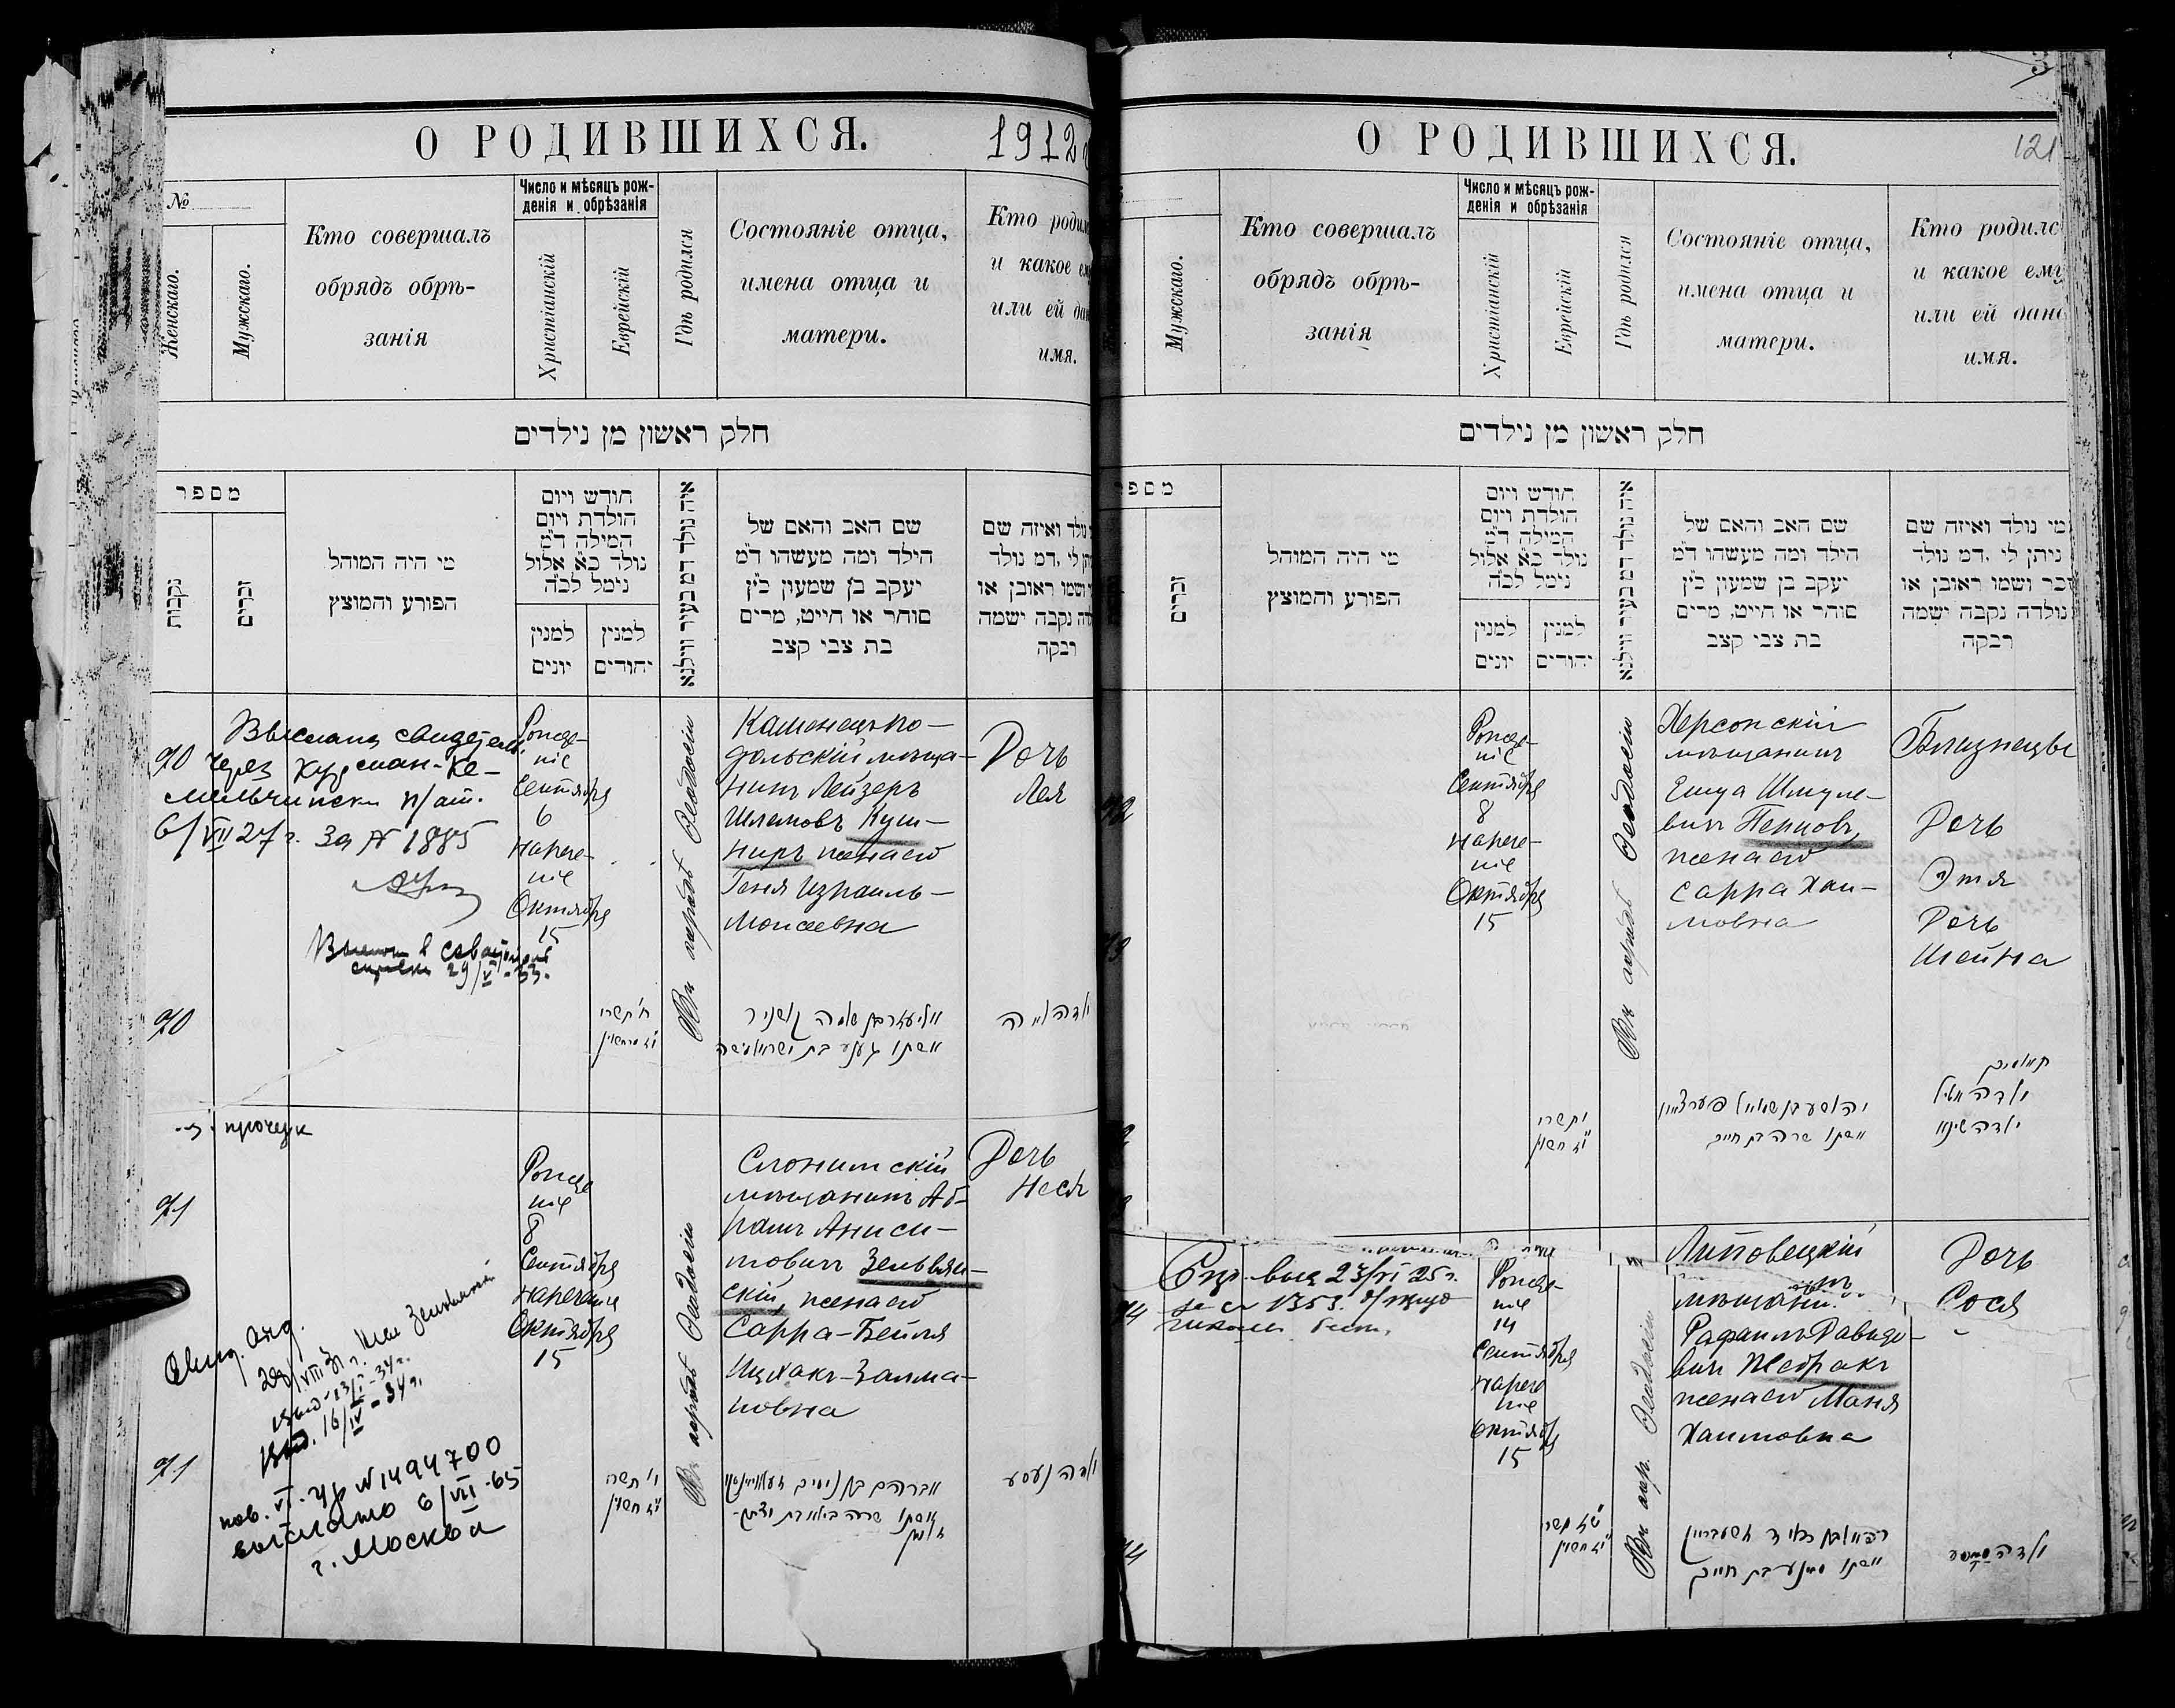 О РОДИВШИХСЯ.
1912
№
Женскаго.
Мужскаго.
Кто совершалъ
обрядъ обрѣ-
занія
Число и мѣсяцъ рож-
денія и обрѣзанія
Христіанскій
Еврейскій
Гдѣ родился
Состояніе отца,
имена отца и
матери.
Кто родил
и какое ем
или ей дан
имя.
חלק ראשון מן נילדים
מספר
נקבות
זכרים
מי היה המוהל
הפורע והמוצץ
חודש ויום
הולדת ויום
המילה ד״מ
נולד כ״א אלול
נימל לכ״ה
למנין
יונים
למנין
יהודים
איה נולד דמ בעיר ווילנא
שם האב והאם של
הילד ומה מעשהו ד״מ
יעקב בן שמעון כ״ץ
סוחר או חייט, מרים
בת צבי קצב
נולד ואיזה שם
לי .דמ נולד
ושמו ראובן או
נקבה ישמה
רבקה
70
Выслана свидетел.
через
п/от.
6/VII 27 г. За № 1885
29/V-33.
Рожде-
ніе
Сентября
6
Нарече-
ніе
Октября
15
Въ городѣ Ѳеодосіи
Каменецъ-По-
дольскій мѣща-
нинъ Лейзеръ
Шлемовъ Куш-
ниръ жена его
Геня Израиль-
Моисеевна
Дочь
Лея
70
ח׳ תשרי
אליעזר בן שלמה קושניר
ואשתו גענע בת ישראל משה
ילדה לאה
прочерк
71
Рожде
ніе
8
Сентября
Наречение
Октября
15
Въ городѣ Ѳеодосіи
Слонимскій
мѣщанинъ Аб-
рамъ Аниси-
мовичъ Зельвян-
скій, жена его
Сарра-Бейля
Ицхакъ-Залма-
новна
Дочь
Неся
13/I-34г.
Выд. 16/IV-34г.
№ 1494700
выслано 6/VII-65
г. Москва
71
י׳ תשרי
י״ז חשון
ילדה נעסע
О РОДИВШИХСЯ.
121
Мужскаго.
Кто совершалъ
обрядъ обрѣ-
занія
Число и мѣсяцъ рож-
денія и обрѣзанія
Христіанскій
Еврейскій
Гдѣ родился
Состояніе отца,
имена отца и
матери.
Кто родилс
и какое ему
или ей дано
имя.
חלק ראשון מן נילדים
מספ
זכרים
מי היה המוהל
הפורע והמוצץ
חודש ויום
הולדת ויום
המילה ד״מ
נולד כ״א אלול
נימל לכ״ה
למנין
יונים
למנין
יהודים
איה נולד דמ בעיר ווילנא
שם האב והאם של
הילד ומה מעשהו ד״מ
יעקב בן שמעון כ״ץ
סוחר או חייט, מרים
בת צבי קצב
מי נולד ואיזה שם
ניתן לי .דמ נולד
זכר ושמו ראובן או
נולדה נקבה ישמה
רבקה
72
73
Рожде-
ніе
Сентября
8
Нарече-
ніе
Октября
15
Въ городѣ Ѳеодосіи
Херсонскій
мѣщанинъ
Ешуа Шмуле-
вичъ Перцовъ,
жена его
Сарра Хаи-
мовна
Близнецы
Дочь
Этя
Дочь
Шейна
תאומים
י׳ תשרי
י״ז חשון
ואשתו שרה בת חיים
74
23/VI 25 г.
за № 1353.
Рожде-
ніе
14
Сентября
Нарече
ніе
Октября
15
Въ гор. Ѳеодосіи
Липовецкій
мѣщанинъ
Рафаилъ Давидо-
вичъ Жебракъ
жена его Маня
Хаимовна
Дочь
Сося
74
ט״ז תשרי
י״ז חשון
ואשתו מאניע בת חיים